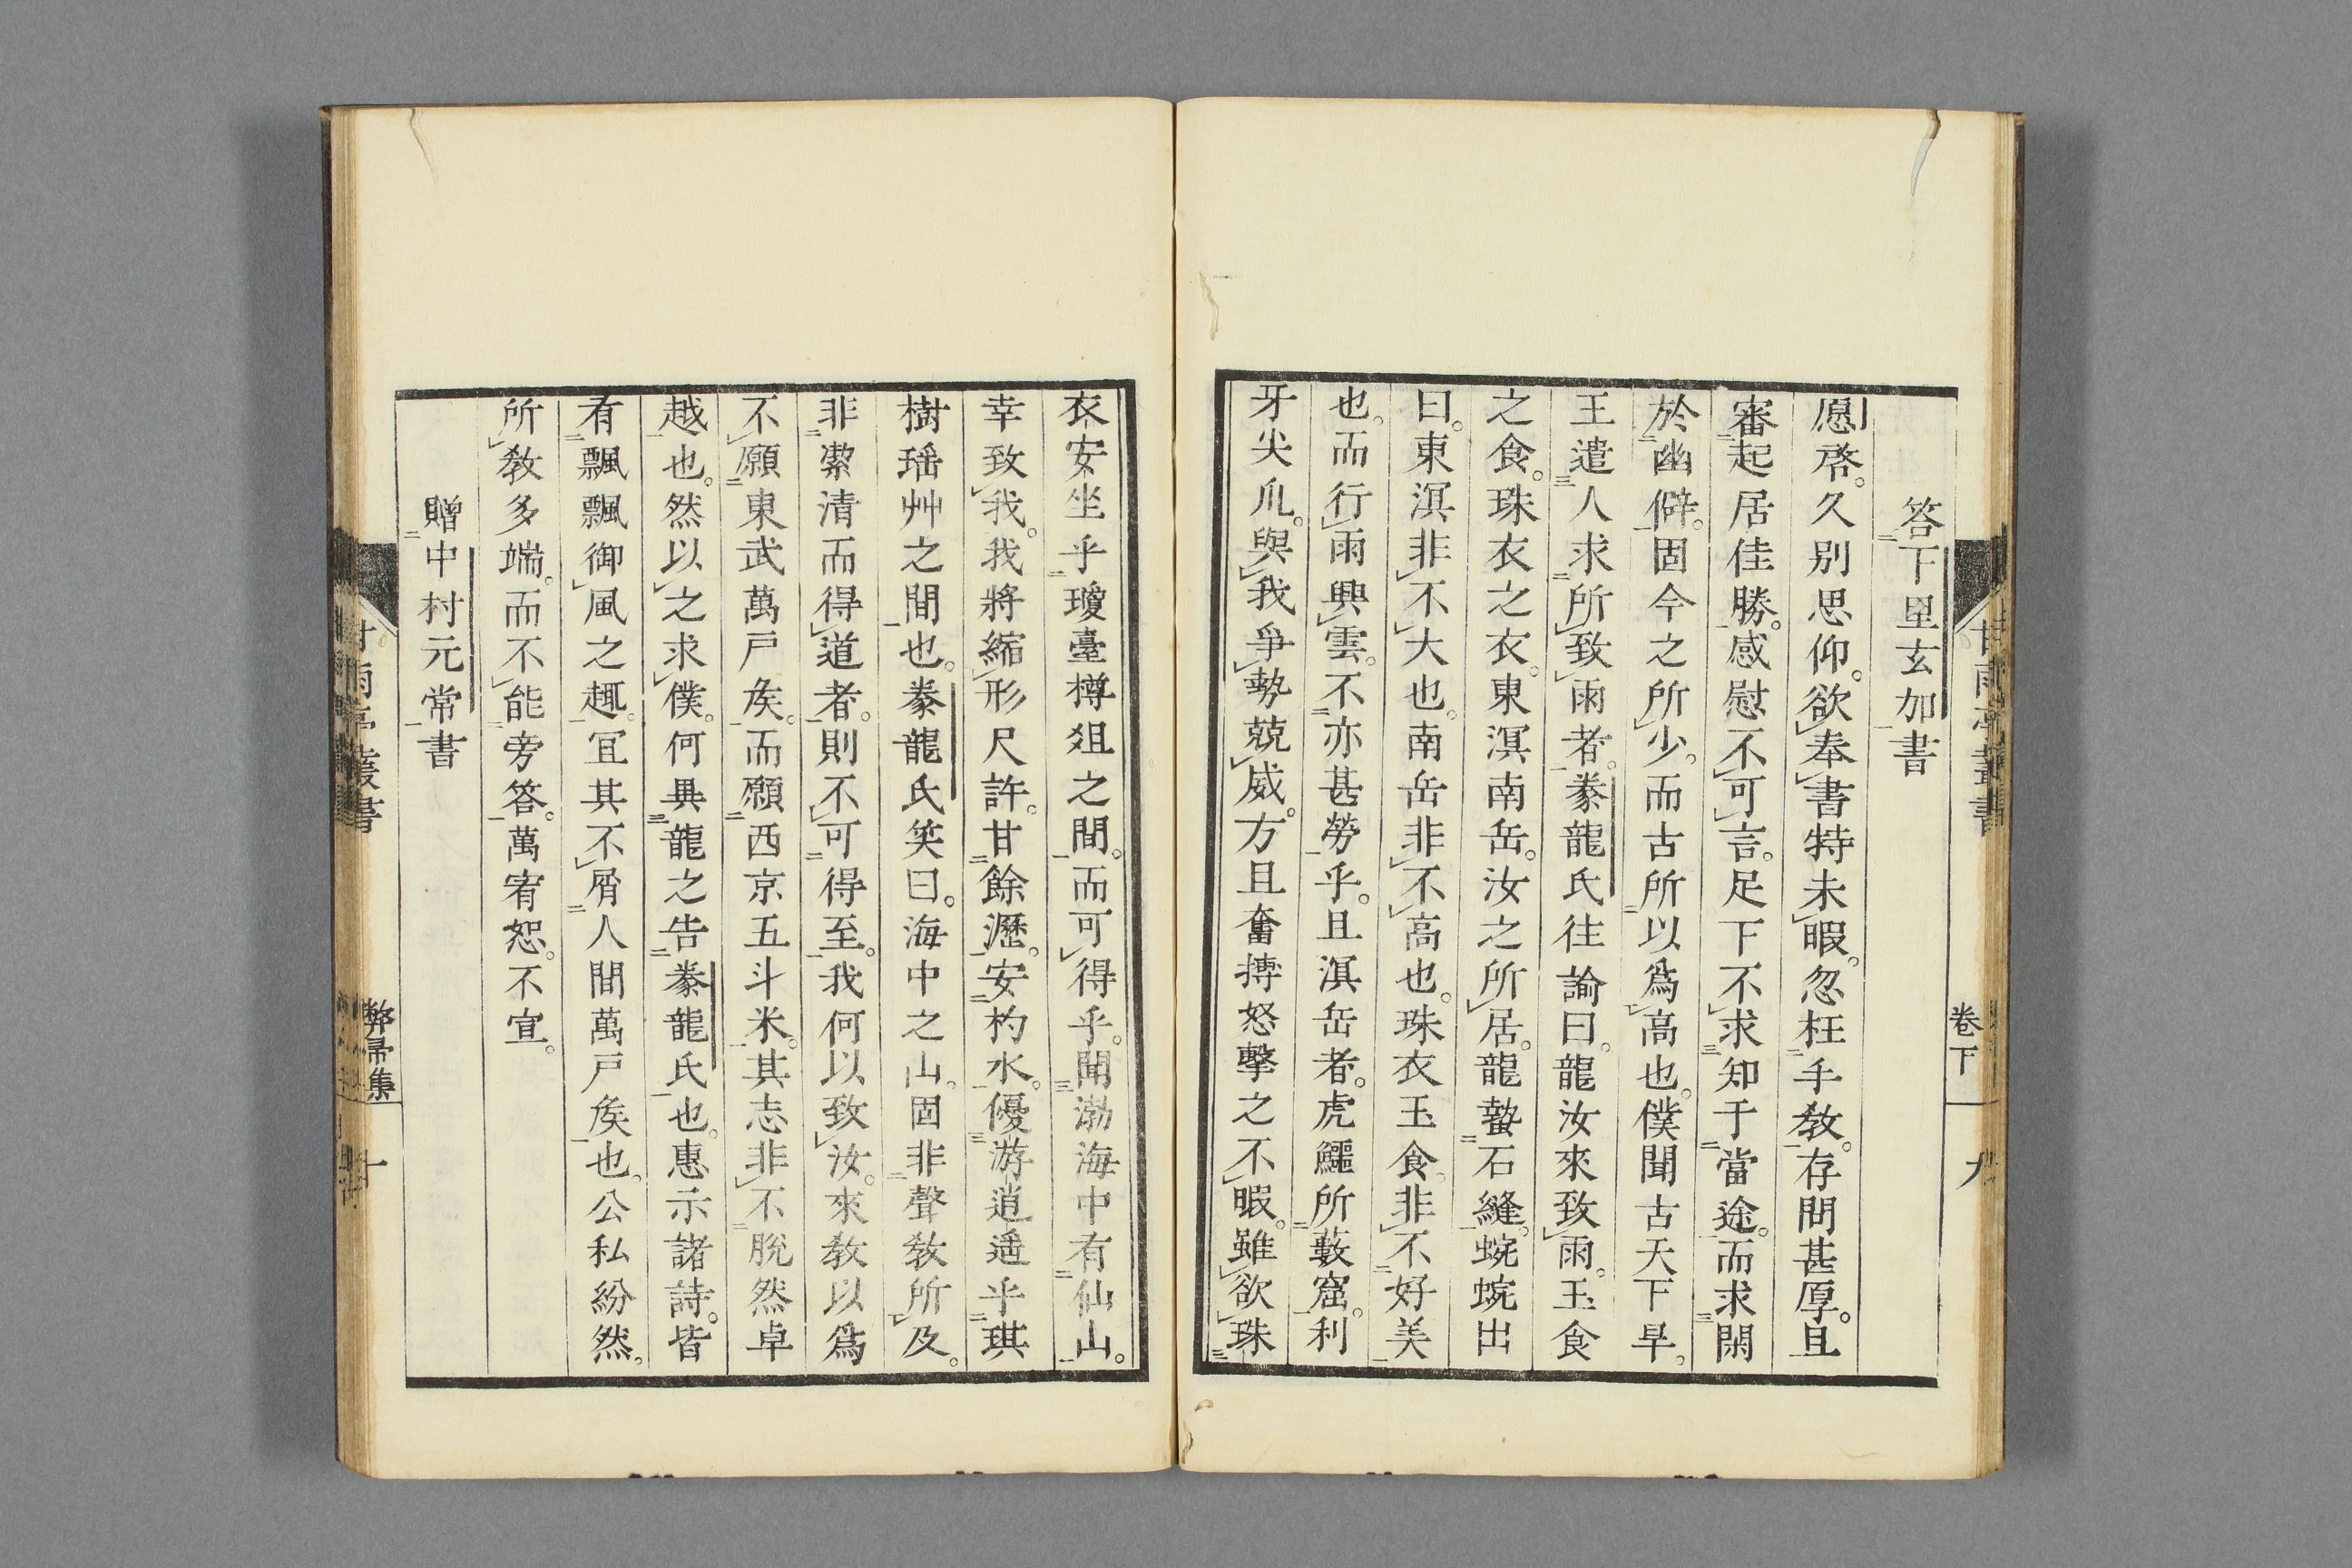 答下里玄加書
愿啓。久別思仰。欲奉書特未暇。忽枉手教。存問甚厚。且
審起居佳勝。感慰不可言。足下不求知于當途。而求閑
於幽僻。固今之所少。而古所以爲高也。僕聞古天下旱。
王遣人求所致雨者。豢龍氏往諭曰。龍汝來致雨。玉食
之食。珠衣之衣。東溟南岳。汝之所居。龍蟄石縫。蜿蜿出
曰。東溟非不大也。南岳非不高也。珠衣玉食。非不好美
也。而行雨興雲。不亦甚勞乎。且溟岳者。虎鱷所藪窟。利
牙尖爪。與我爭勢競威。方且奮搏怒擊之不暇。雖欲珠
甘雨亭叢書
卷下
九
衣安坐乎瓊臺樽俎之間。而可得乎。聞渤海中有仙山。
幸致我。我將縮形尺許。甘餘瀝。安杓水。優游逍遥乎琪
樹瑶艸之間也。豢龍氏笑曰。海中之山。固非聲教所及。
非潔清而得道者。則不可得至。我何以致汝。來教以爲
不願東武萬戸矦。而願西京五斗米。其志非不脫然卓
越也。然以之求僕。何異龍之告豢龍氏也。惠示諸詩。皆
有飄飄御風之趣。冝其不屑人間萬戸矦也。公私紛然。
所教多端。而不能旁答。萬宥恕。不宣。
贈中村元常書
甘雨亭叢書
弊帚集
十